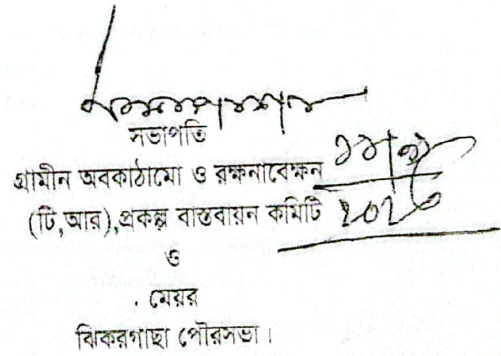 সভাপতি
গ্রামীন অবকাঠামো ও রক্ষনাবেক্ষন
(টি,আর),প্রকল্প বাস্তবায়ন কমিটি
ও
মেয়র
ঝিকরগাছা পৌরসভা।